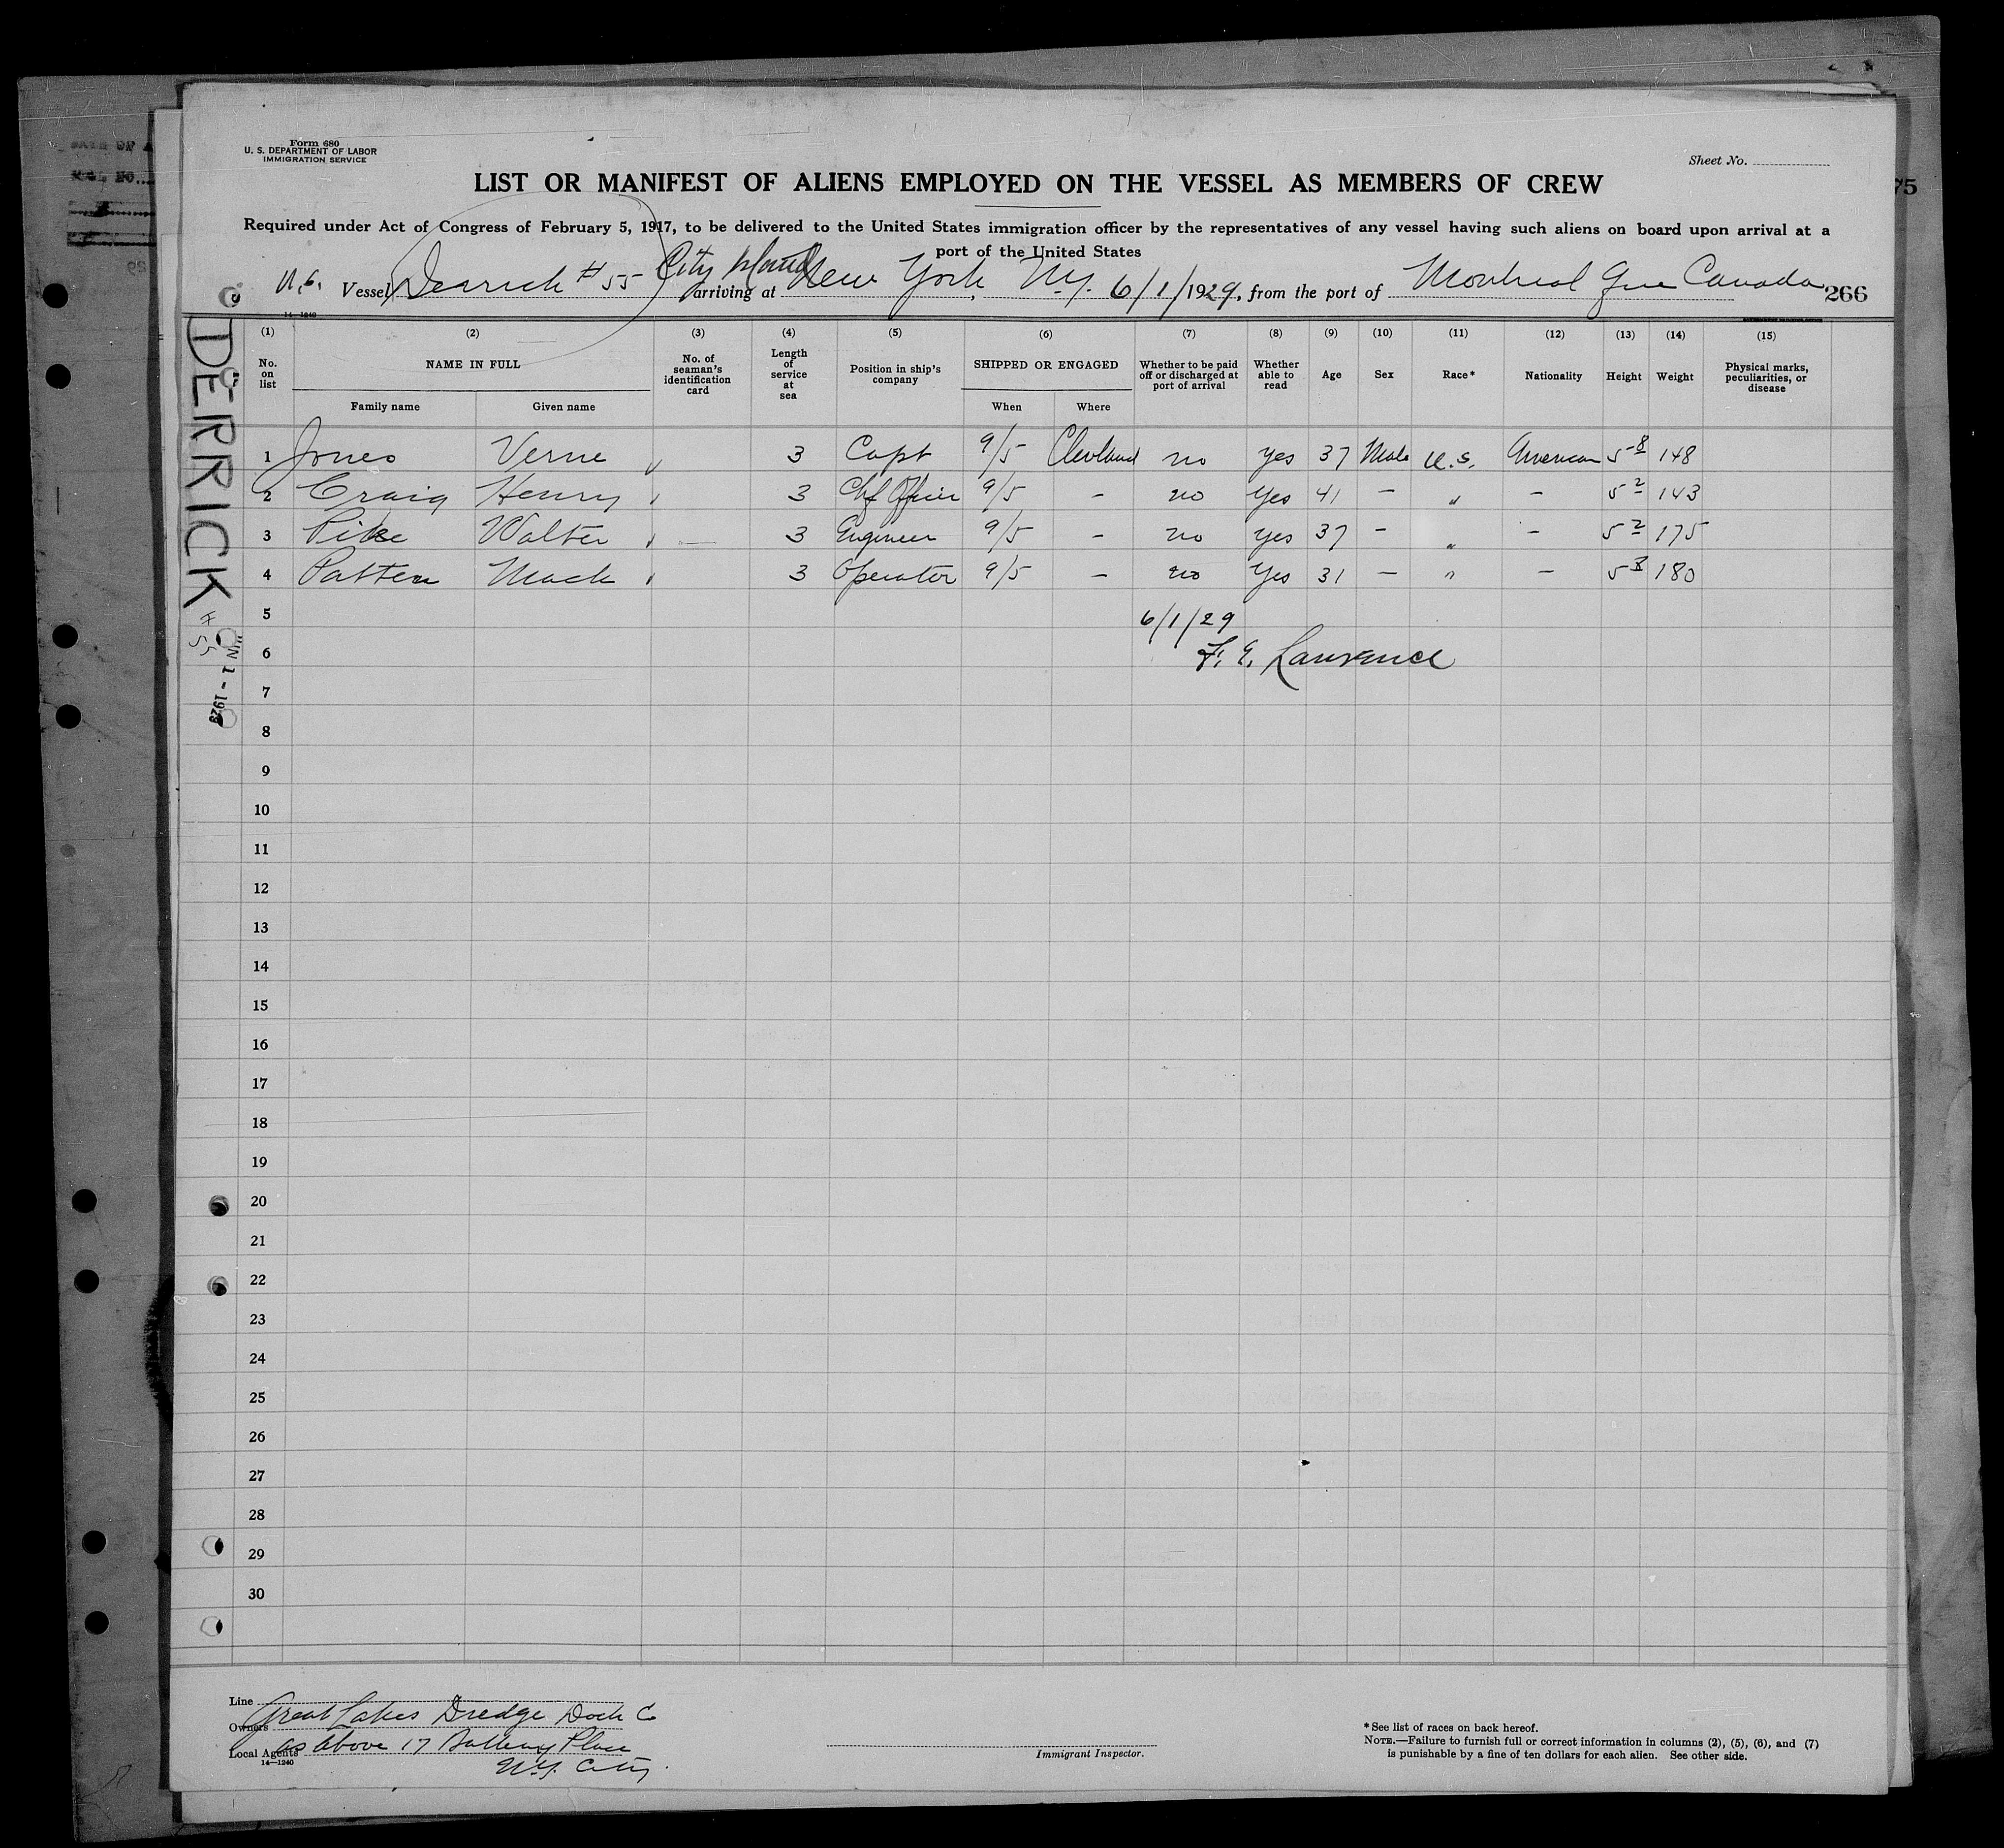 Form 680
U. S. DEPARTMENT OF LABOR
IMMIGRATION SERVICE
Sheet No.
LIST OR MANIFEST OF ALIENS EMPLOYED ON THE VESSEL AS MEMBERS OF CREW
75
Required under Act of Congress of February 5, 1917, to be delivered to the United States immigration officer by the representatives of any vessel having such aliens on board upon arrival at a
port of the United States
Vessel Derrick #55 City Island arriving at New York, N.Y. 6/1/1929, from the port of Montreal Que Canada 266
14-1240
(1) (2) (3) (4) (5) (6) (7) (8) (9) (10) (11) (12) (13) (14) (15)
No. on list NAME IN FULL Family name Given name No. of seaman's identification card Length of service at sea Position in ship's company SHIPPED OR ENGAGED When Where Whether to be paid off or discharged at port of arrival Whether able to read Age Sex Race* Nationality Height Weight Physical marks, peculiarities, or disease
1 Jones Verne 3 Capt 9/5 Cleveland no yes 37 Male U.S. American 5-8 148
2 Craig Henry 3 Chf Officer 9/5 - no yes 41 - " - 5 2 143
3 Pike Walter 3 Engineer 9/5 - no yes 37 - " - 5 2 175
4 Patten Mack 3 Operator 9/5 - no yes 31 - " - 5 8 180
5 6/1/29
6 F. E. Lawrence
7
8
9
10
11
12
13
14
15
16
17
18
19
20
21
22
23
24
25
26
27
28
29
30
DERRICK
#55
JUN 1 - 1929
Line
Great Lakes Dredge Dock Co
Owners
Local Agents as above 17 Battery Place
14—1240
N.Y. City.
Immigrant Inspector.
*See list of races on back hereof.
NOTE.—Failure to furnish full or correct information in columns (2), (5), (6), and (7)
is punishable by a fine of ten dollars for each alien. See other side.